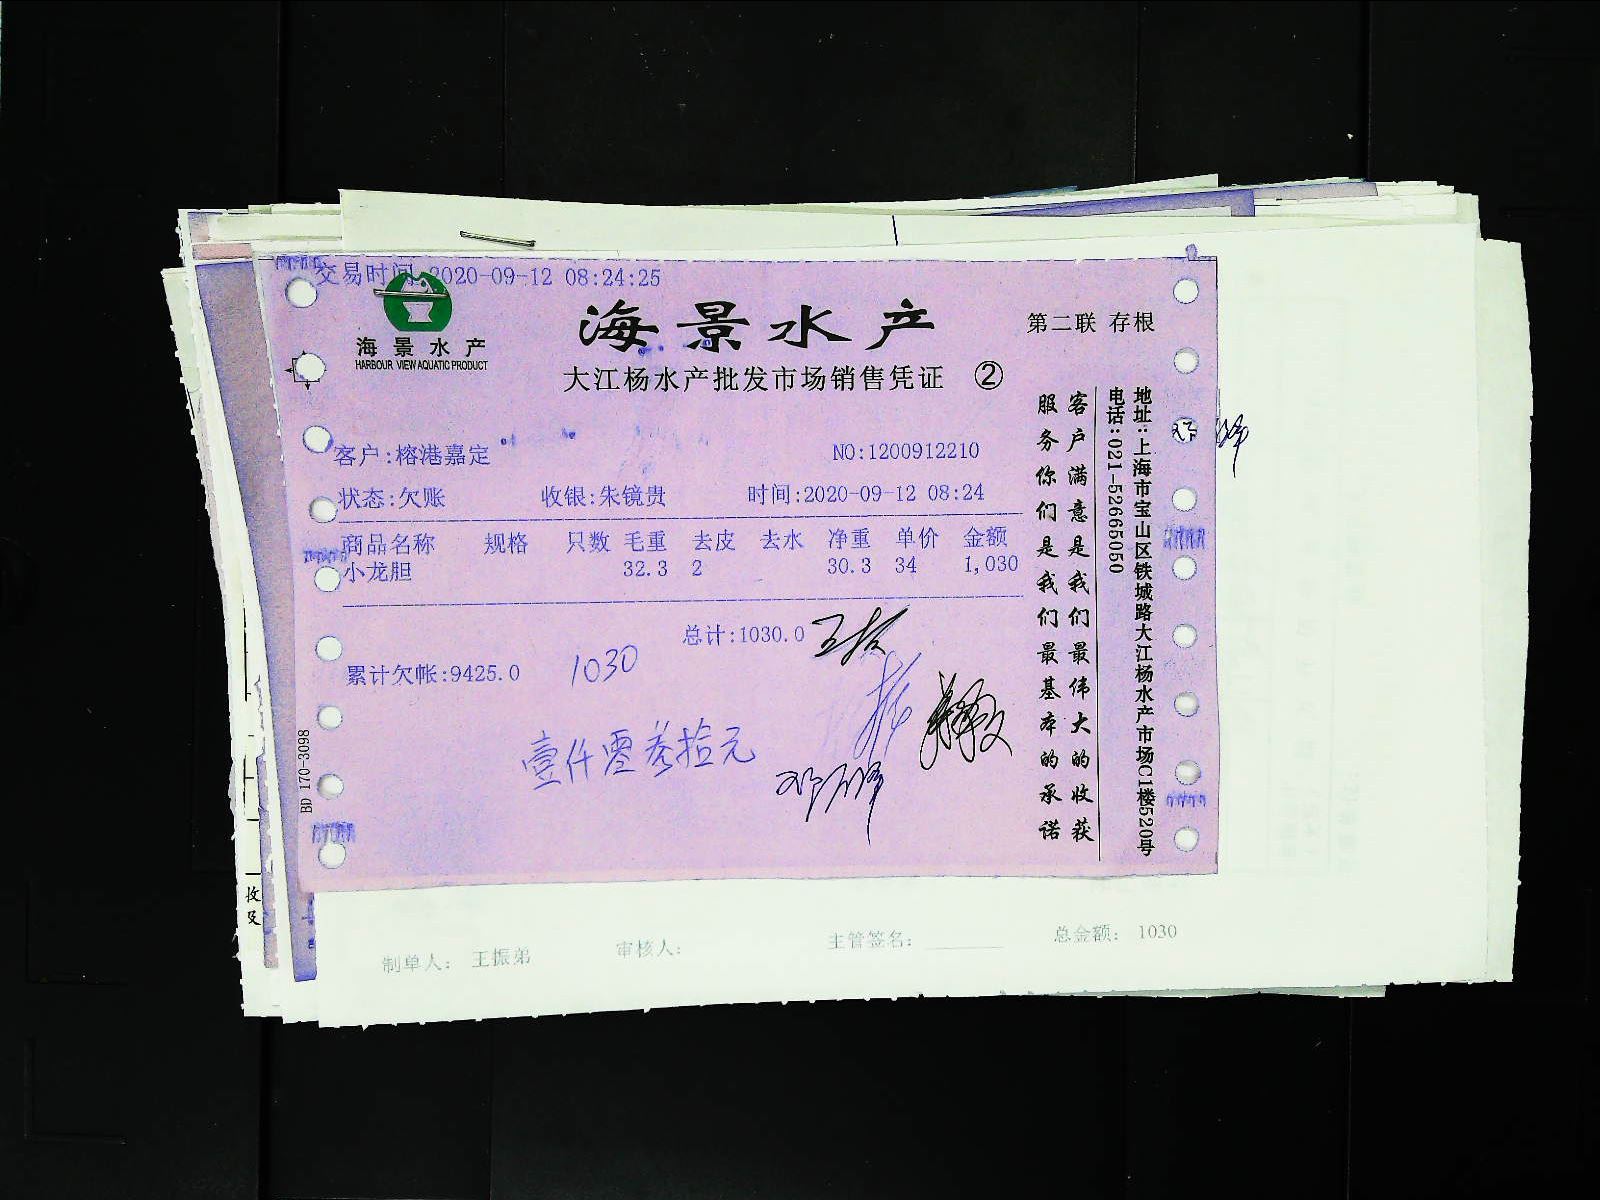 交易时间:2020-09-12 08:24:25
海景水产
HARBOUR VIEW AQUATIC PRODUCT
海景水产
第二联 存根
大江杨水产批发市场销售凭证 ②
客户:榕港嘉定
NO:1200912210
状态:欠账 收银:朱镜贵 时间:2020-09-12 08:24
商品名称 规格 只数 毛重 去皮 去水 净重 单价 金额
小龙胆 32.3 2 30.3 34 1,030
总计:1030.0
累计欠帐:9425.0
1030
壹仟零叁拾元
客户满意是我们最伟大的收获
服务你们是我们最基本的承诺
地址:上海市宝山区铁城路大江杨水产市场C1楼520号
电话:021-52665050
BD 170-3098
收
及
制单人: 王振弟 审核人: 主管签名: 总金额: 1030